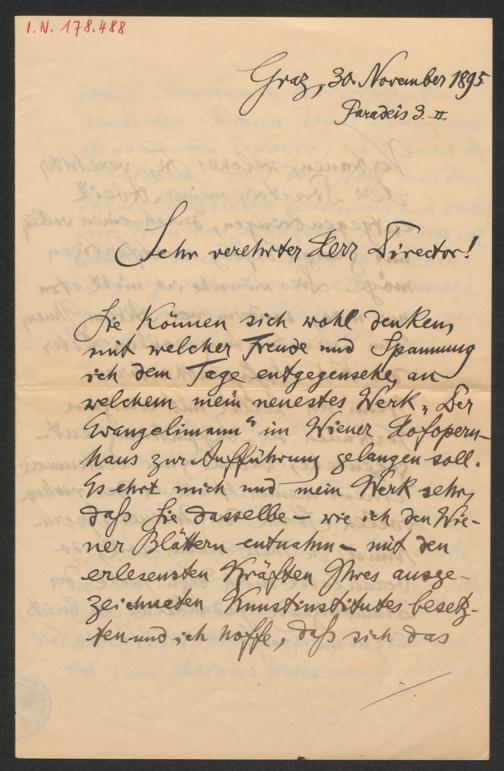 I. N. 178.488
Graz, 30. November 1895
Paradeis 3. II
Sehr verehrter Herr Director!
Sie können sich wohl denken,
mit welcher Freude und Spannung
ich dem Tage entgegensehe, an
welchem mein neuestes Werk „Der
Evangelimann“ im Wiener Hofopern-
haus zur Aufführung gelangen soll.
Es ehrt mich und mein Werk sehr,
daß Sie dasselbe – wie ich den Wie-
ner Blättern entnahm – mit den
erlesensten Kräften Ihres ausge-
zeichneten Kunstinstitutes besetz-
ten und ich hoffe, daß sich das